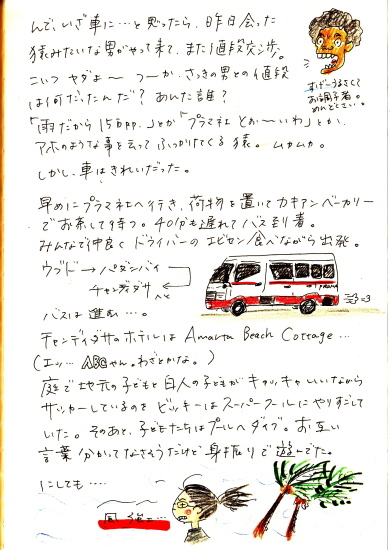 んで、いざ車に…と思ったら、昨日会った
猿みたいな男がやって来て、また値段交渉。
こいつ ヤダよ〜 つーか、さっきの男との値段
は何だったんだ? あんた誰?
すげーうるさくて
お調子者。
めんどくさい。
「雨だから15000p.」とか「プラマ社 とお〜いわ」とか、
アホのような事を云って ふっかけてくる 猿。ムカムカ。
しかし、車はきれいだった。
早めにプラマ社へ行き、荷物を置いてカキアンベーカリー
でお茶して待つ。40分も遅れてバス到着。
みんなで仲良く ドライバーの エビセン食べながら出発。
ウブド → パダンバイ
チャンディダサ へと
PRAMA
バスは進む…。
チャンディダサのホテルは Amarta Beach Cottage…
(エッ… ABCちゃん。わざとかな。)
庭で地元の子どもと白人の子どもが キャッキャいいながら
サッカーしているのを ビッキーはスーパークールに やりすごして
いた。そのあと、子どもたちはプールへダイブ。お互い
言葉 分かってなさそうだけど 身振りで遊んでた。
にしても‥‥
風 強ェ…